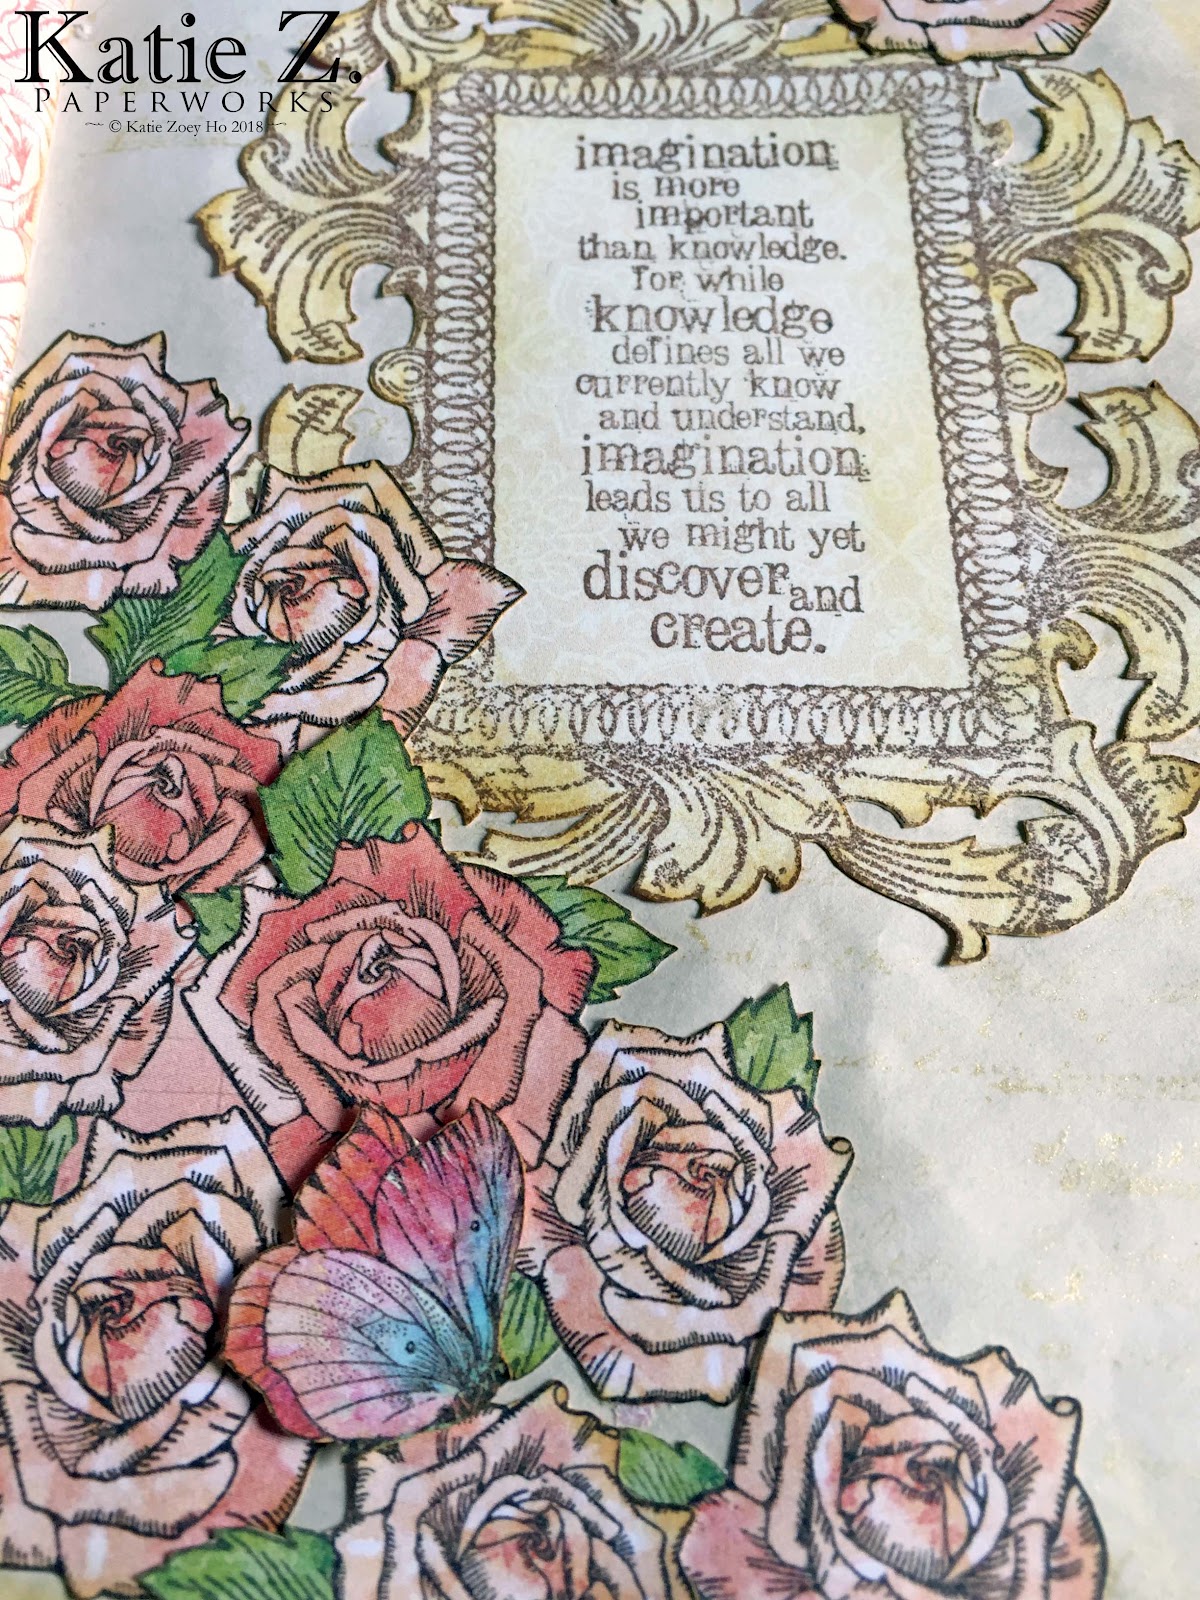 Katie Z.
PAPERWORKS
© Katie Zoey Ho 2018
imagination
is more
important
than knowledge.
for while
knowledge
defines all we
currently know
and understand,
imagination
leads us to all
we might yet
discover and
create.